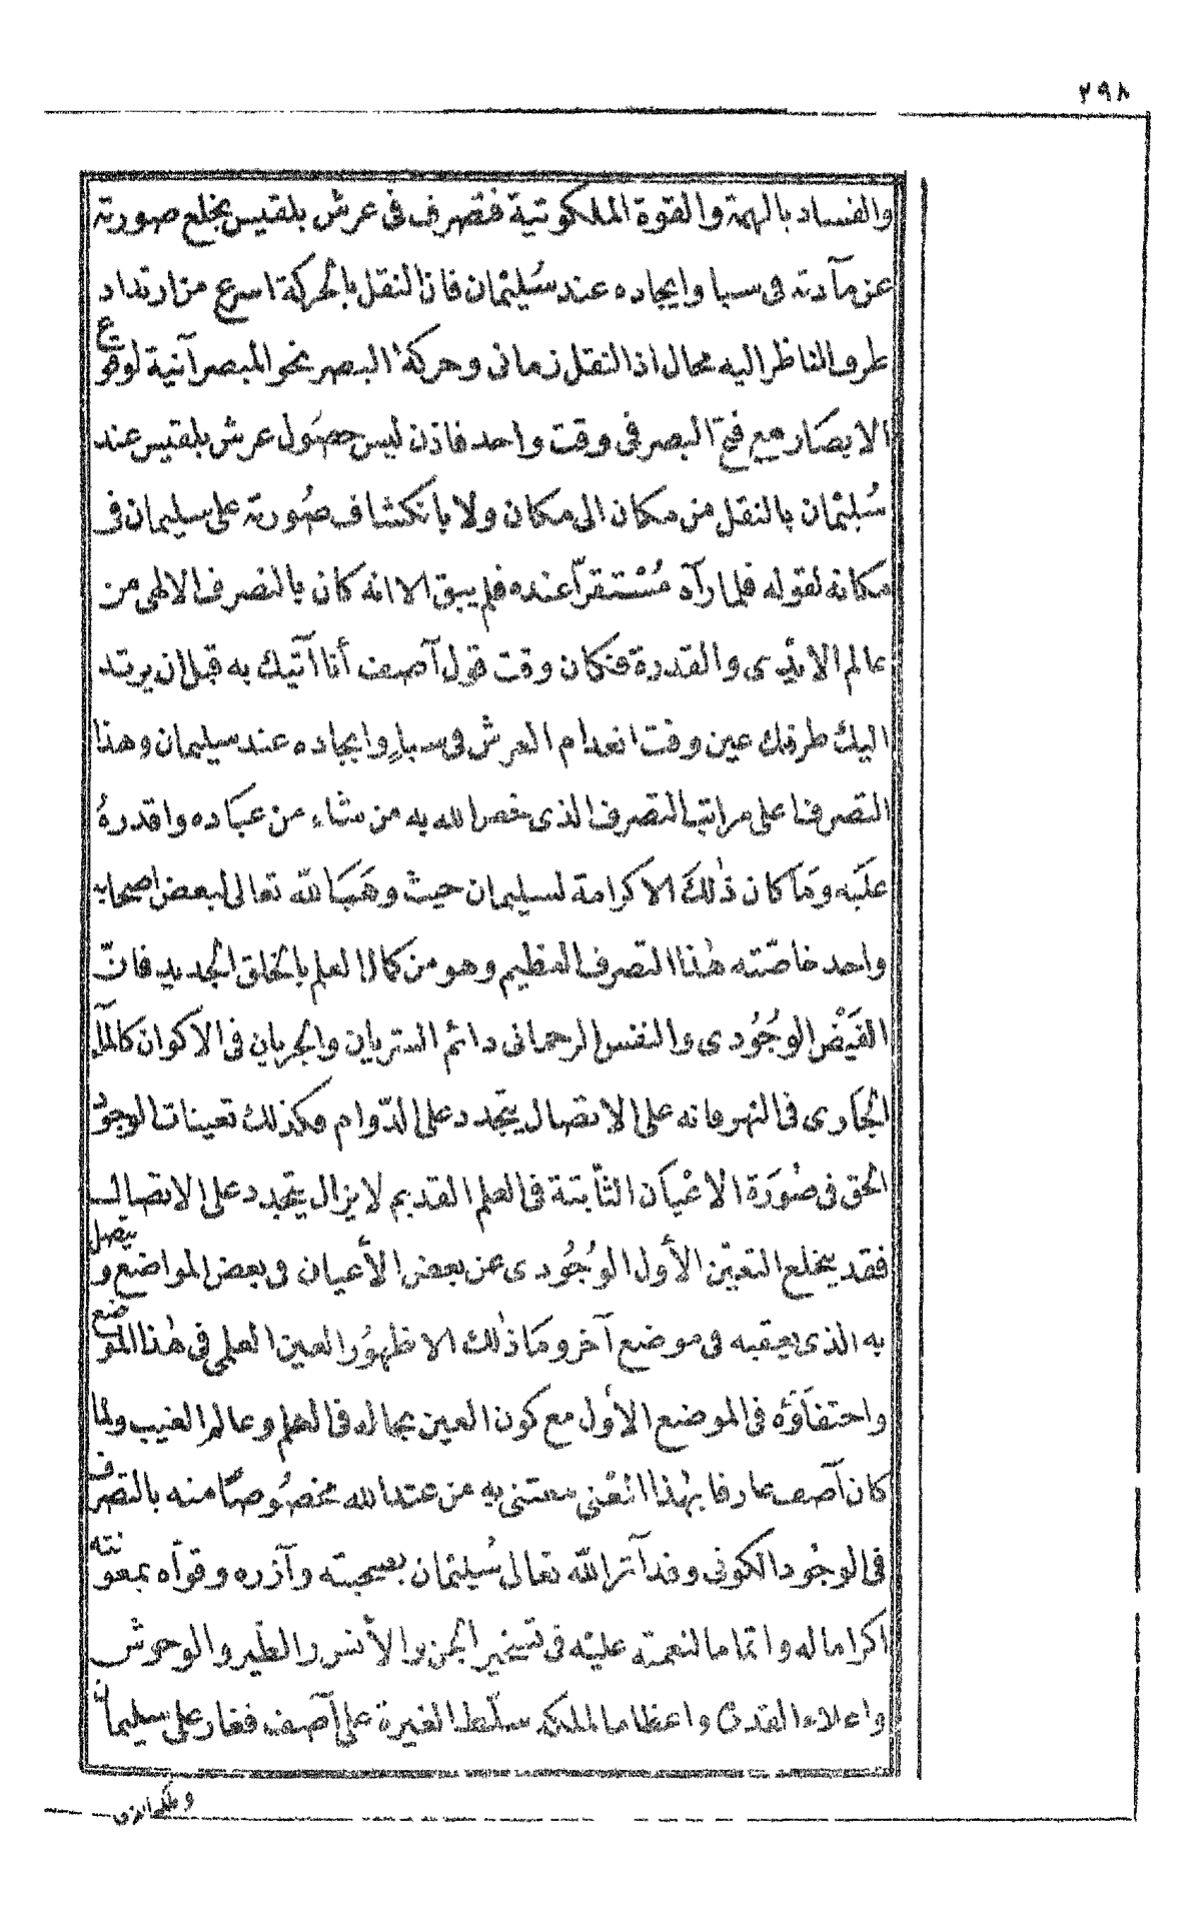 ٢٩٨
والفساد بالهمة والقوة الملكوتية فتصرف فى عرش بلقيس بخلع صورته
عن مآدته فى سبا وايجاده عند سُليمٰان فان النقل بالحركة اسرع من ارتداد
طرف الناظر اليه محال اذ النقل زمانى وحركة البصر نحو المبصر آنية لوقوع
الابصار مع فتح البصر فى وقت واحد فاذن ليس حصُول عرش بلقيس عند
سُليمٰان بالنقل من مكان الى مكان ولا بانكشاف صُورته على سليمان فى
مكانه لقوله فلما رآه مُسْتقرّا عنده فلم يبق الا انه كان بالتصرف الالهى من
عالم الايدى والقدرة فكان وقت قول آصف أنا آتيك به قبل ان يرتد
اليك طرفك عين وقت انعدام العرش فى سبإ وايجاده عند سليمان وهذا
التصرف اعلى مراتب التصرف الذى خص الله به من شاء من عباده واقدرهُ
عليَه ومَا كان ذٰلكَ الا كرامة لسليمان حيث وهَبَ الله تعالى لبعض اصحابه
واحد خاصّته هٰذا التصرف العظيم وهو من كمال العلم بالخلق الجديد فانّ
الفَيْض الوجُودى والنفس الرحمانى دائم السريان والجريان فى الاكوان كالمآء
الجارى فى النهر فانه على الاتصال يتجدد على الدّوام فكذلك تعينات الوجود
الحق فى صُورَة الاعْيان الثابتة فى العلم القديم لا يزال يتجدد على الاتصال
فقد يخلع التعيّن الأول الوُجُودى عن بعض الأعيان فى بعض المواضع ويتصل
به الذى يعقبه فى موضع آخر ومَا ذٰلك الا ظهُور العين العلمى فى هٰذا الموضع
واختفاؤه فى الموضع الأول مع كون العين بحاله فى العلم وعالم الغيب ولما
كان آصف عارفا بهٰذا المعْنى معتنى به من عند الله مخصُوصًا منه بالتصرف
فى الوجُود الكونى وقد آثر الله تعالى سُليمٰان بصحبته وآزره وقوّاه بمعونته
اكراما له واتماما لنعمته عليْه فى تسخير الجن والأنس والطّير والوحوش
واعلاء القدره واعظاما لملكه سلّط الغيرة على آصف فغار على سليمان
وملكه الذى